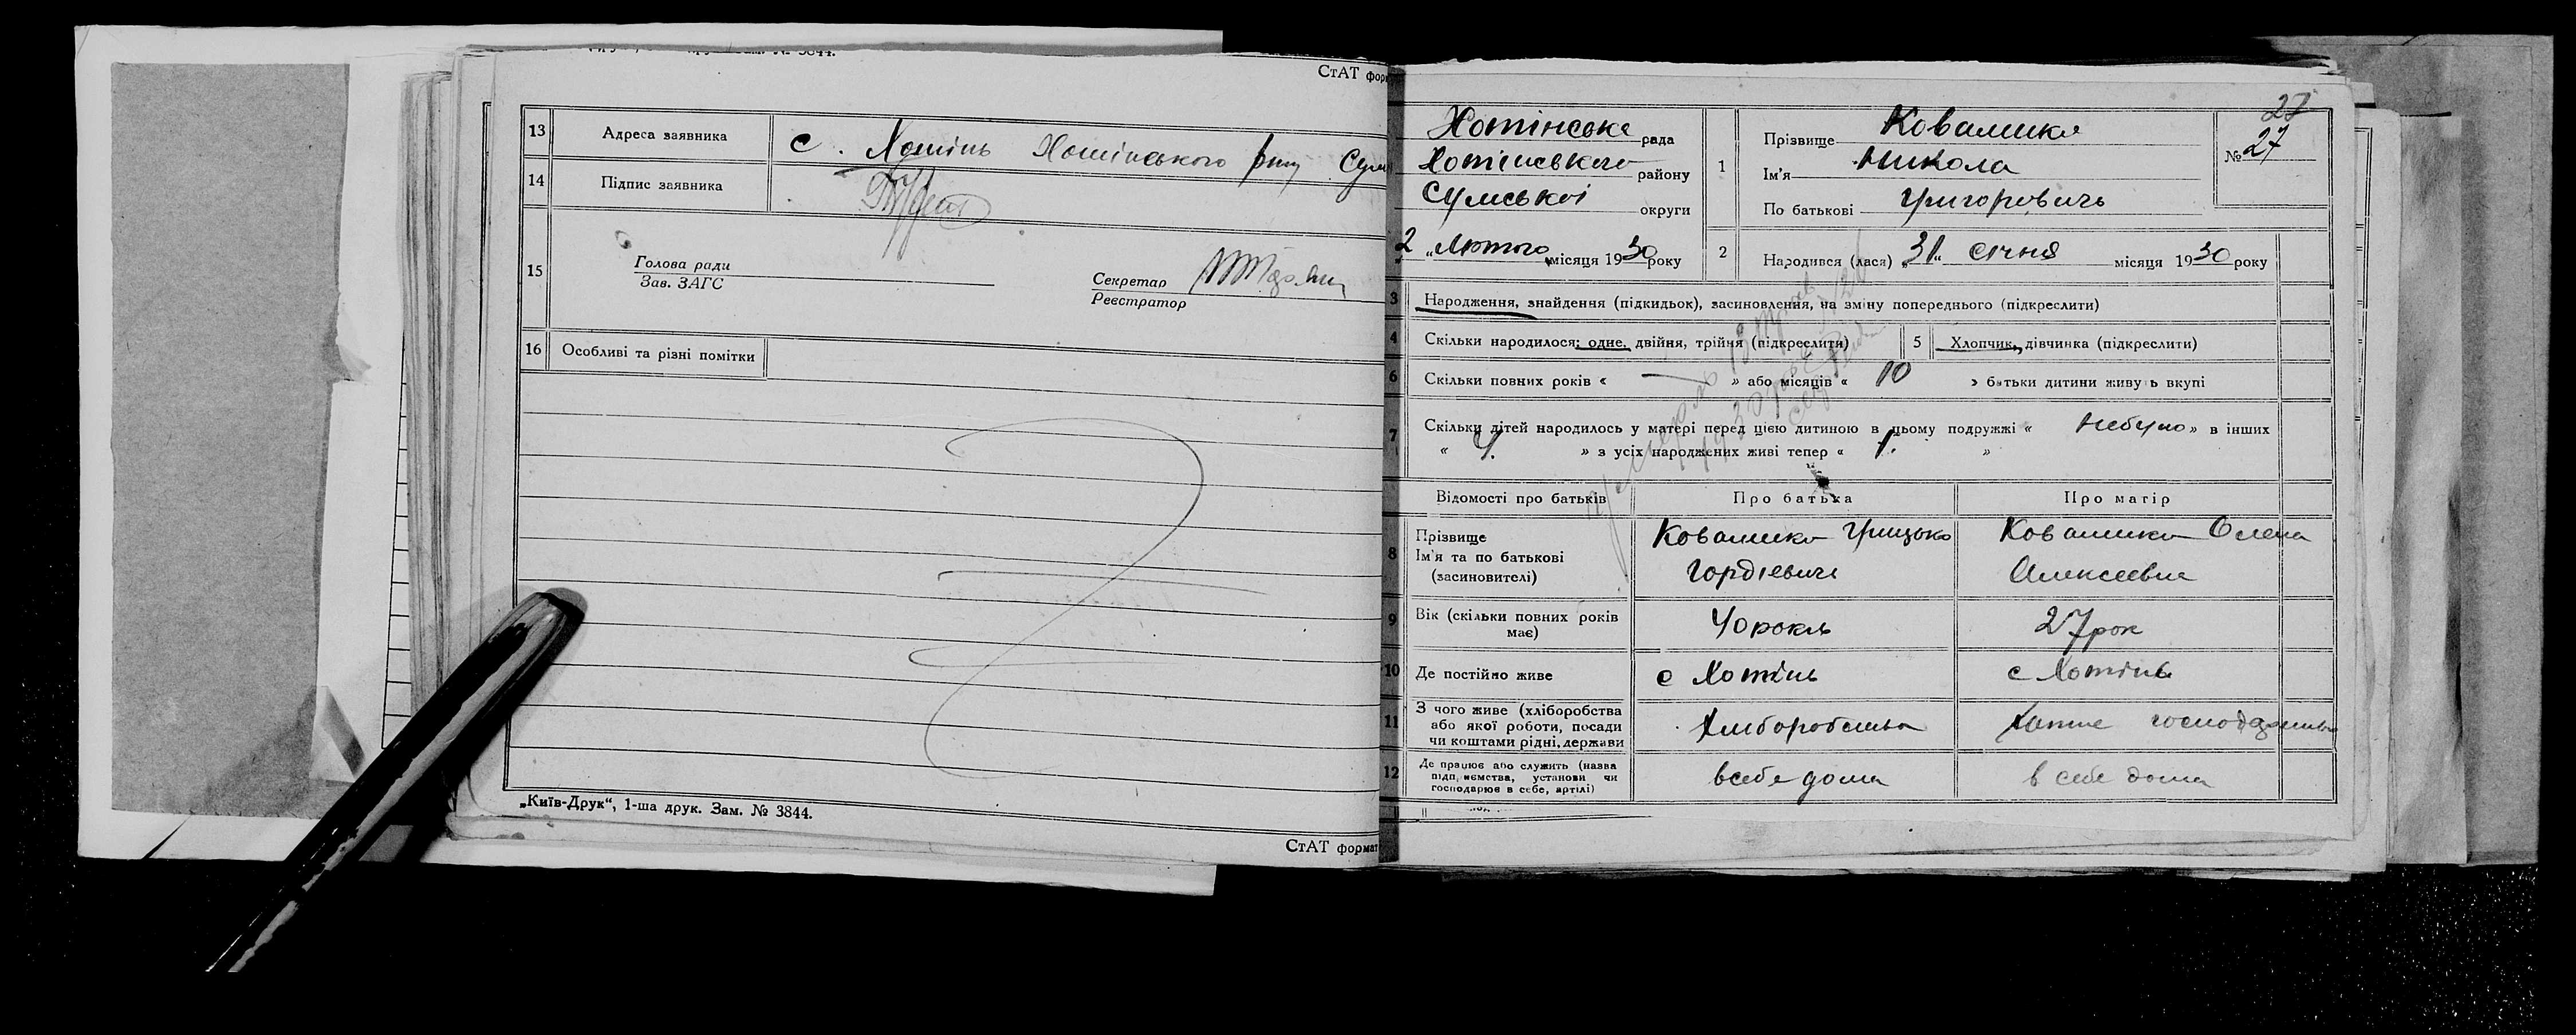 Зам. № 3844.
СтАТ форм
13 Адреса заявника с. Хотінь Хотінського р-ну Сумс
14 Підпис заявника
15 Голова ради
Зав. ЗАГС
Секретар
Реєстратор
16 Особливі та різні помітки
„Київ-Друк“, 1-ша друк. Зам. № 3844.
СтАТ формат
27
Хотінська рада
Хотінського району
Сумської округи
2 „ Лютого місяця 1930 року
1 Прізвище Ковалишко
Ім'я Микола
По батькові Григоровичь
№ 27
2 Народився (лася) „31“ січня місяця 1930 року
3 Народження, знайдення (підкидьок), засиновлення, на зміну попереднього (підкреслити)
4 Скільки народилося: одне, двійня, трійня (підкреслити)
5 Хлопчик, дівчинка (підкреслити)
6 Скільки повних років « — » або місяців « 10 » батьки дитини живуть вкупі
7 Скільки дітей народилось у матері перед цією дитиною в цьому подружжі « небуло » в інших
« 4. » з усіх народжених живі тепер « 1. »
Відомості про батьків Про батька Про матір
8 Прізвище
Ім'я та по батькові
(засновителі)
Ковалишко Грицько
Гордіевичь
Ковалишко Олена
Алексеевна
9 Вік (скільки повних років має) 40 рокив 27 рок
10 Де постійно живе с Хотінь с Хотінь
11 З чого живе (хліборобства
або якої роботи, посади
чи коштами рідні, держави
Хлиборобства Хатне господарство
12 Де працює або служить (назва
підприємства, установи чи
господарює в себе, артілі)
всебе дома в себе дома